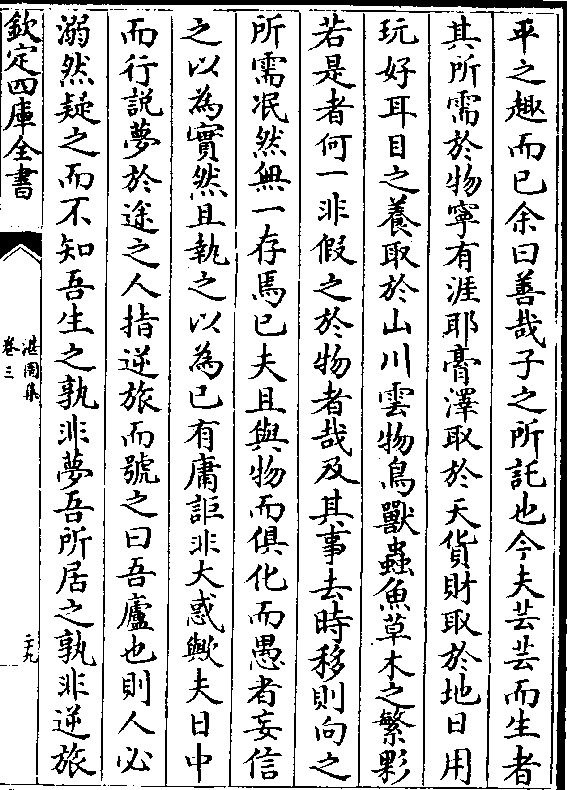 平之趣而已余曰善哉子之所託也今夫芸芸而生者
其所需於物寧有涯耶膏澤取於天貨財取於地日用
玩好耳目之養取於山川雲物鳥獸蟲魚草木之繁夥
若是者何一非假之於物者哉及其事去時移則向之
所需泯然無一存焉已夫且與物而俱化而愚者妄信
之以為實然且執之以為已有庸詎非大惑歟夫日中
而行説夢於途之人指逆旅而號之曰吾廬也則人必
溺然疑之而不知吾生之孰非夢吾所居之孰非逆旅
欽定四庫全書
湛園集
卷三
二九